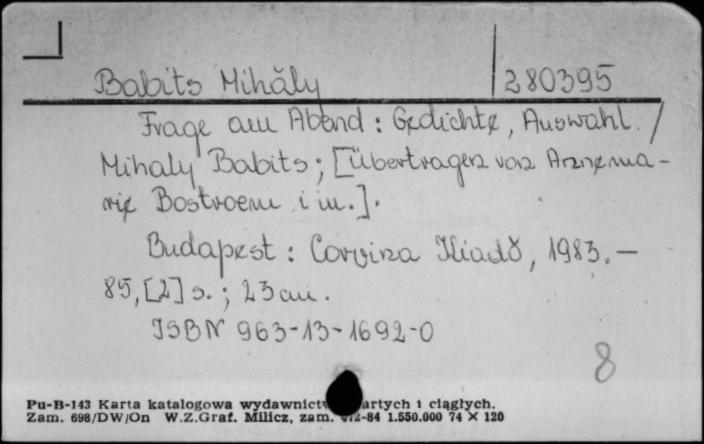 Babits Mihăly 280395
Frage am Abend : Gedichte, Auswahl. /
Mihaly Babits ; [Übertragen von Annema-
rie Bostroem i in.].
Budapest : Corvina Kiadŏ, 1983. —
85, [2] s. ; 23 cm.
ISBN 963-13-1692-0
8
Pu-B-143 Karta katalogowa wydawnictw artych i ciągłych.
Zam. 698/DW/On W.Z.Graf. Milicz, zam. 412-84 1.550.000 74 × 120